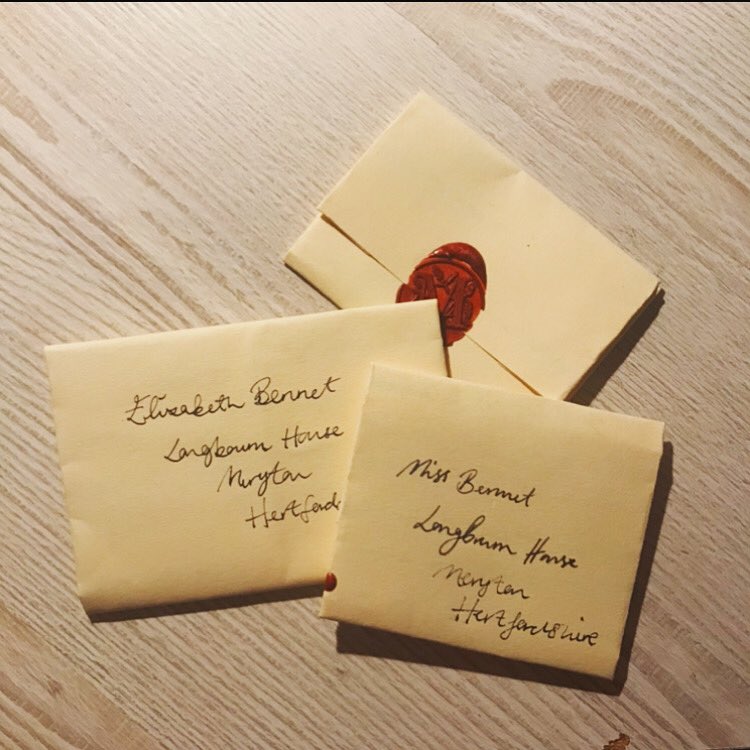 Elizabeth Bennet
Longbourn House
Meryton
Hertfords
Miss Bennet
Longbourn House
Meryton
Hertfordshire